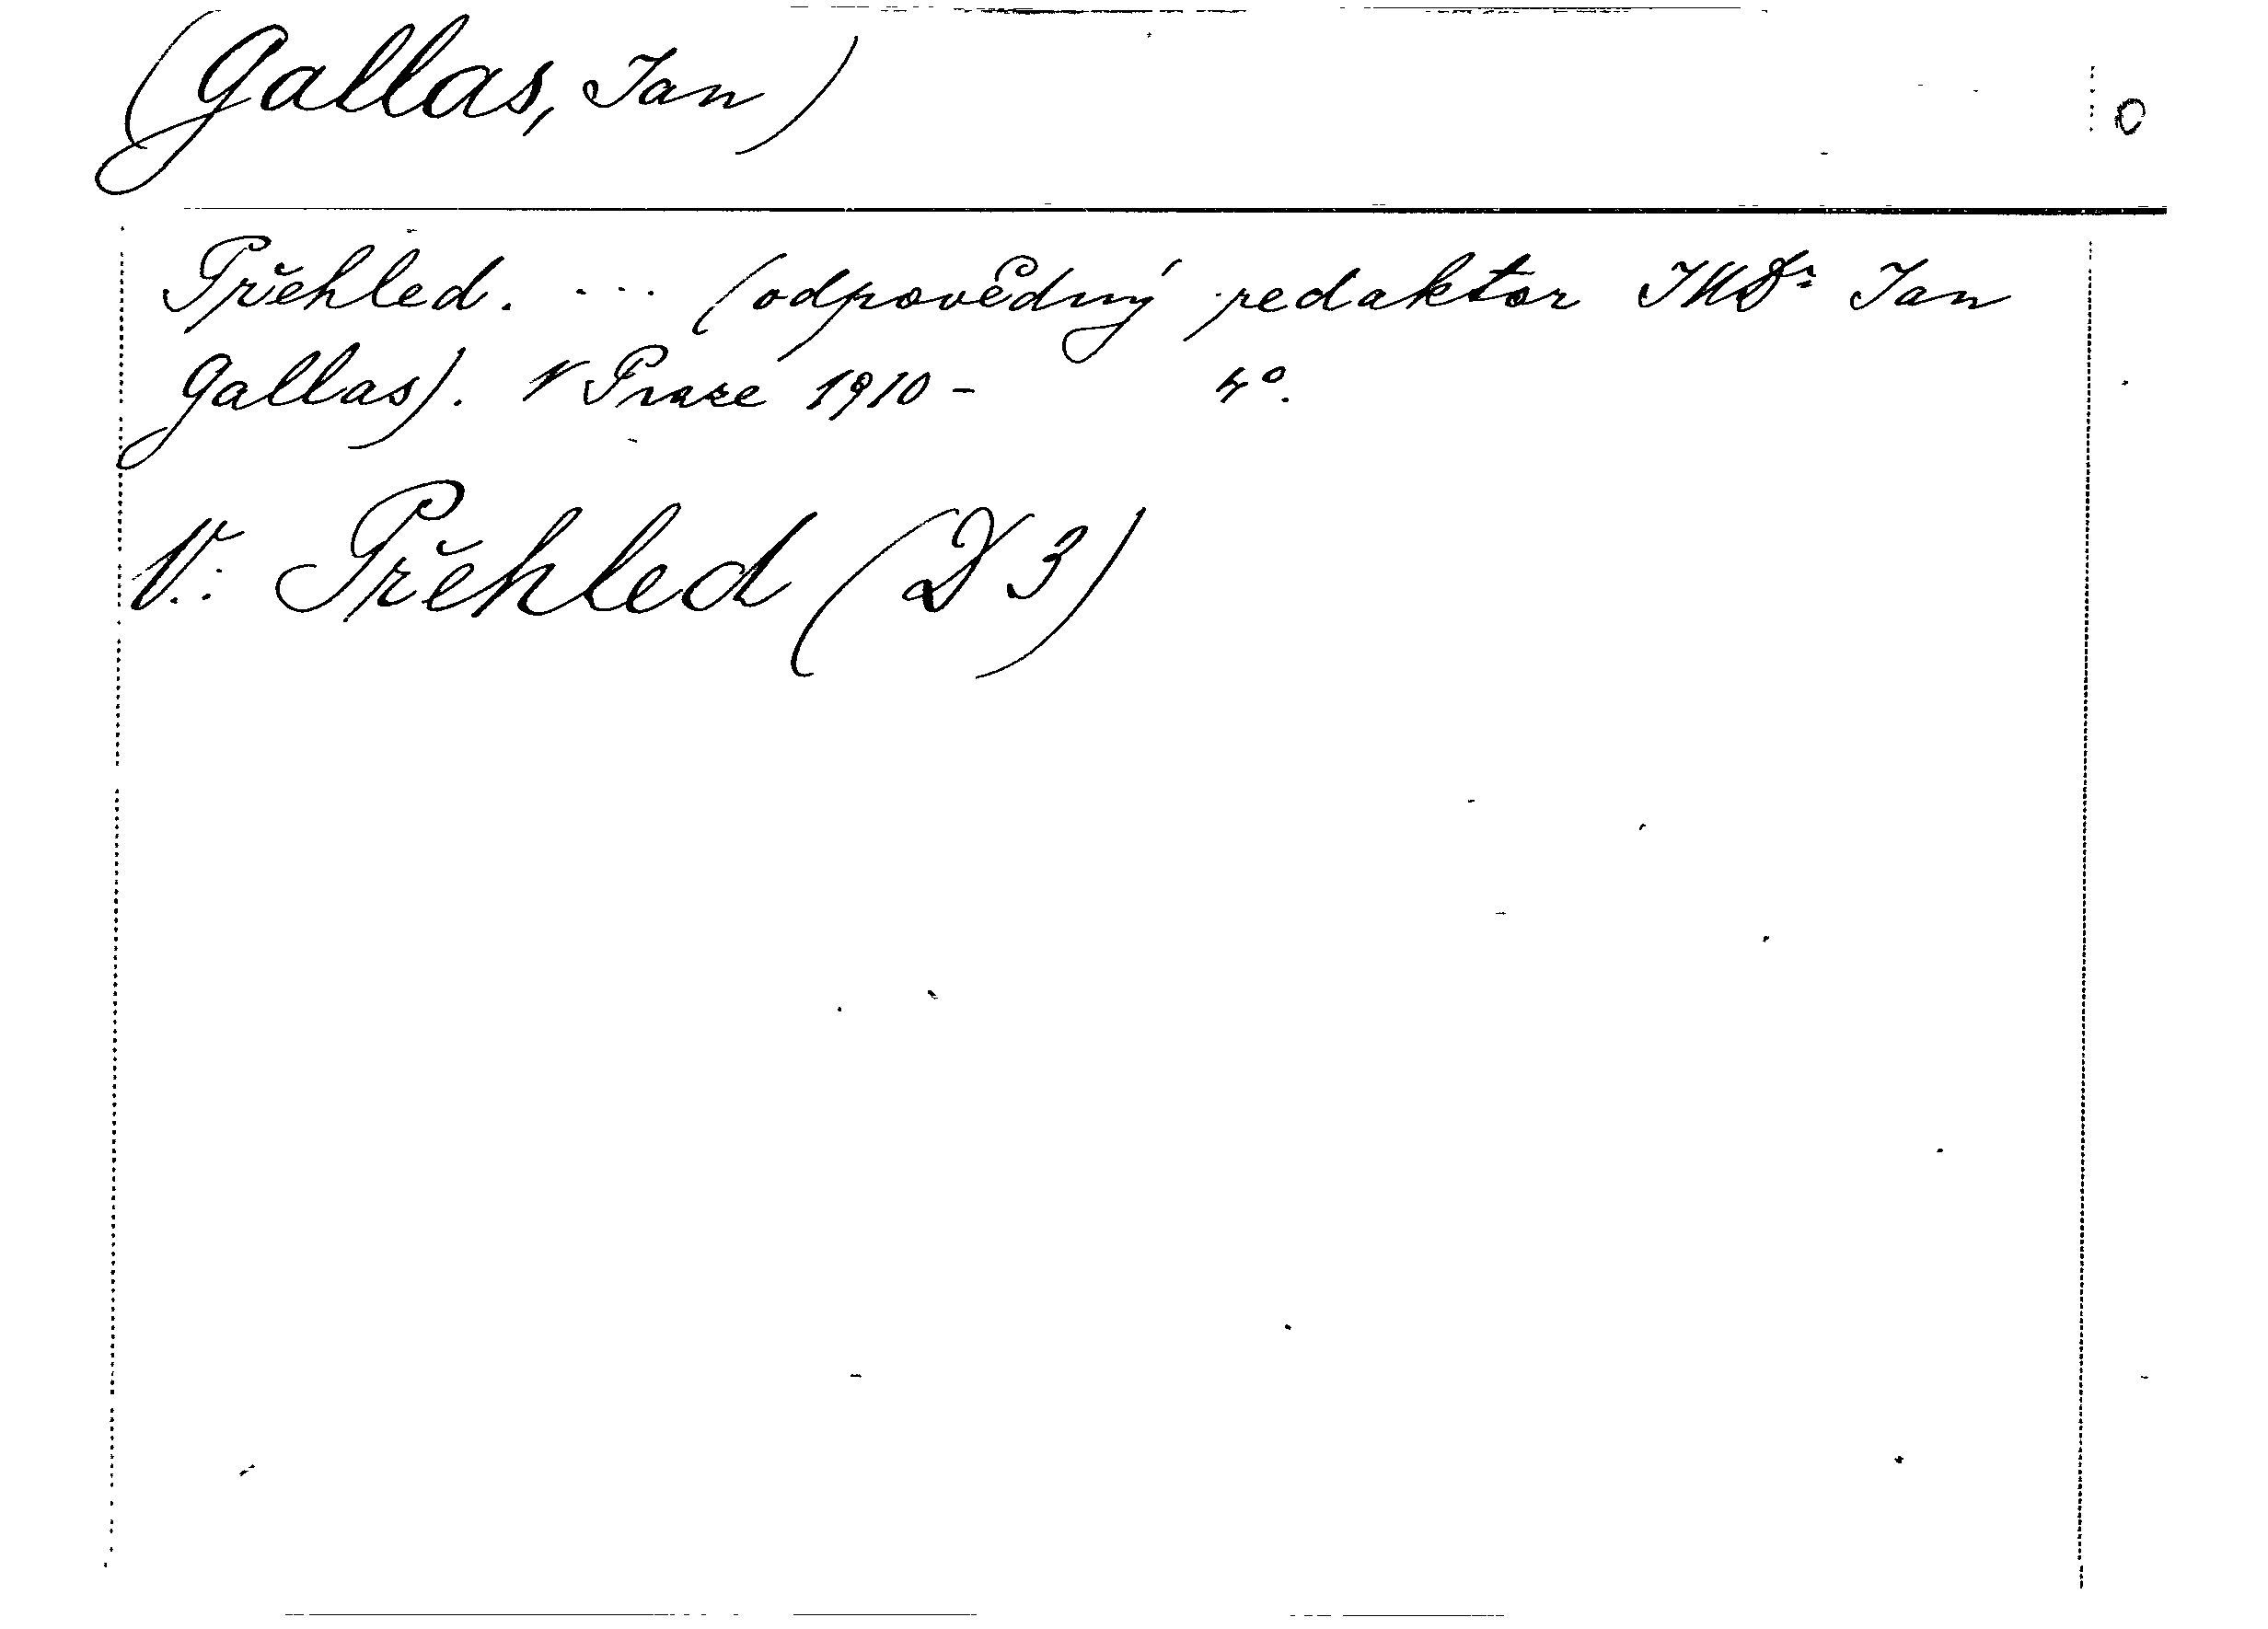 (Gallas, Jan)
Přehled. ... (odpovědný redaktor JUDr Jan
Gallas). V Praze 1910 - 4°.
V.: Přehled (D 3)